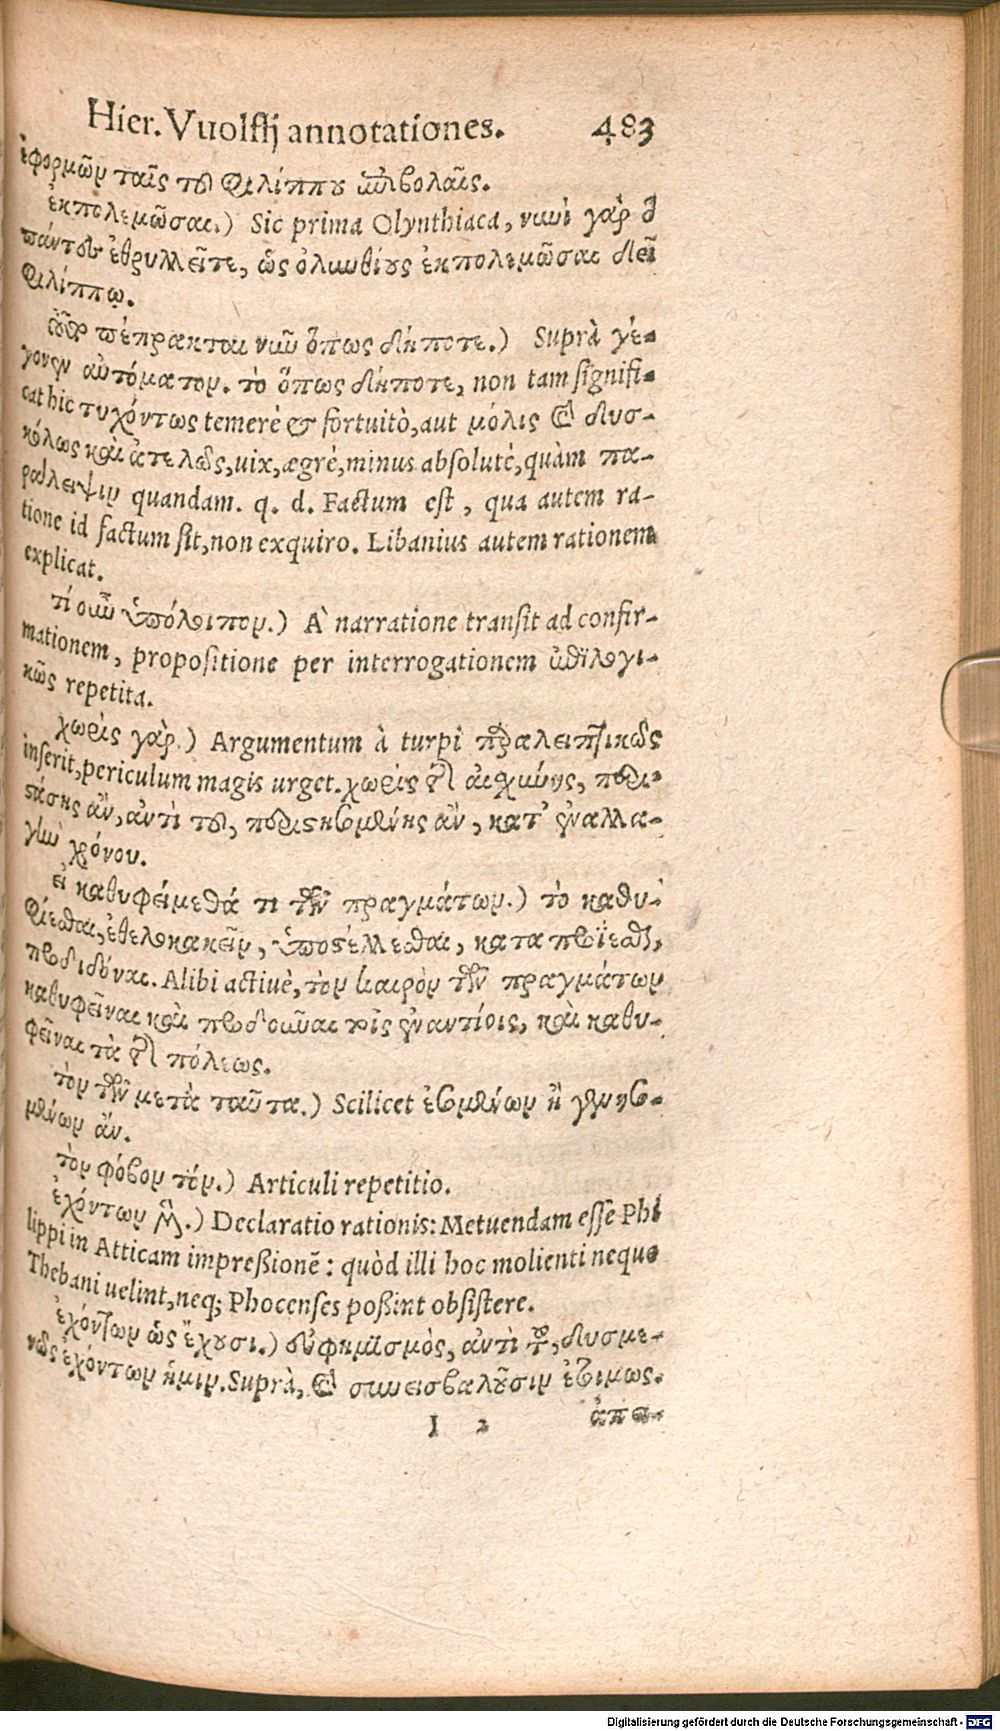 Hier. Vuolfij annotationes. 483
ἐφορμῶν ταῖς τοῦ Φιλίππου ἐπιβολαῖς.
ἐκπολεμῶσαι.) Sic prima Olynthiaca, νυνὶ γὰρ ὃ
πάντες ἐθρυλλεῖτε, ὡς ὀλυνθίους ἐκπολεμῶσαι δεῖ
Φιλίππῳ.
πέπρακται νῦν ὅπως δήποτε.) Suprà γέ-
γονεν αὐτόματον. τὸ ὅπως δήποτε, non tam signifi-
cat hic τυχόντως temerè & fortuitò, aut μόλις & δυσ-
κόλως καὶ ἀτελῶς, uix, ægrè, minus absolutè, quàm πα-
ράλειψιν quandam. q. d. Factum est, qua autem ra-
tione id factum sit, non exquiro. Libanius autem rationem
explicat.
τί οὖν ὑπόλοιπον.) A` narratione transit ad confir-
mationem, propositione per interrogationem ἐπιλογι-
κῶς repetita.
χωρὶς γὰρ.) Argumentum à turpi παραλειπτικῶς
inserit, periculum magis urget. χωρὶς τῆς αἰσχύνης, περι-
στάσης ἂν, ἀντὶ τοῦ, περιστησομένης ἂν, κατ' ἐναλλα-
γὴν χρόνου.
εἰ καθυφείμεθά τι τῶν πραγμάτων.) τὸ καθυ-
φίεσθαι, ἐθελοκακεῖν, ὑποστέλλεσθαι, καταπροΐεσθαι,
προδιδόναι. Alibi actiuè, τὸν καιρὸν τῶν πραγμάτων
καθυφεῖναι καὶ προδοῦναι τοῖς ἐναντίοις, καὶ καθυ-
φεῖναι τὰ τῆς πόλεως.
τὸν τῶν μετὰ ταῦτα.) Scilicet ἐσομένων ἢ γενησο-
μένων ἄν.
τὸν φόβον τόν.) Articuli repetitio.
ἐχόντων μὲν.) Declaratio rationis: Metuendam esse Phi
lippi in Atticam impreßionē: quòd illi hoc molienti neque
Thebani uelint, neq; Phocenses poßint obsistere.
ἐχόντων ὡς ἔχουσι.) εὐφημϊσμὸς, ἀντὶ τοῦ, δυσμε-
νῶς ἐχόντων ἡμῖν. Suprà, & συνεισβαλοῦσιν ἑτοίμως.
I 2 ἀπε-